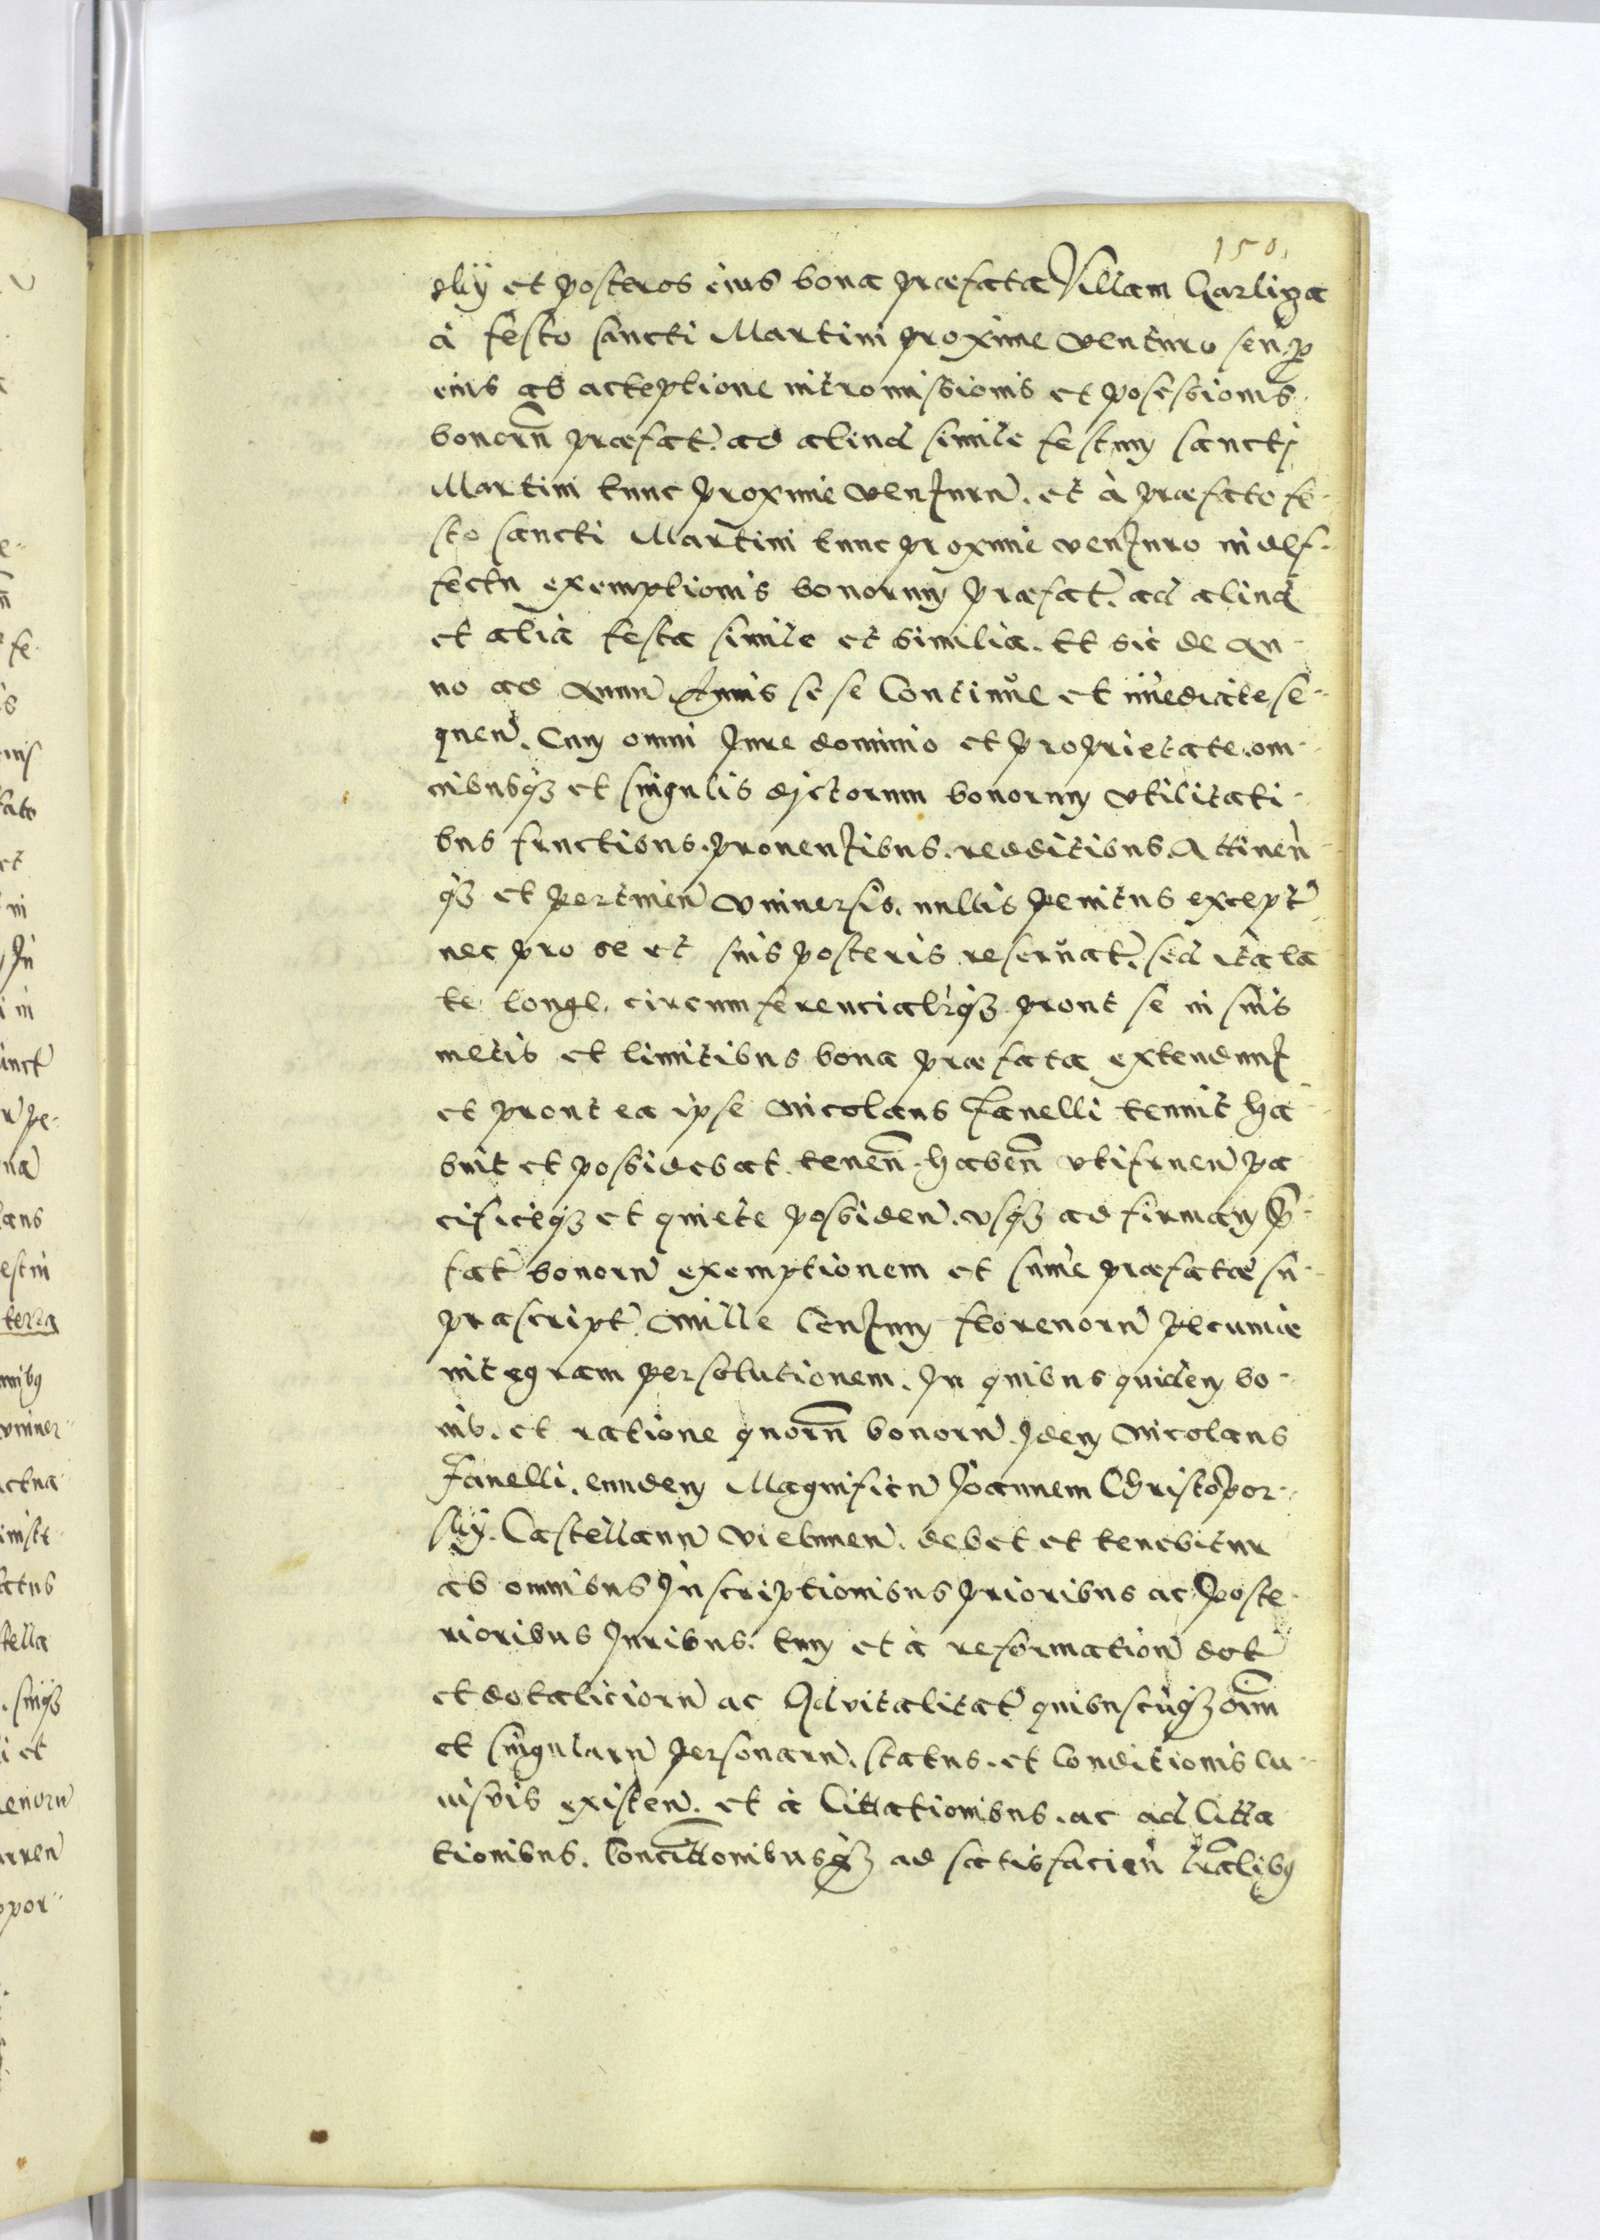 150,
slÿ et posteros eius bona præfata Villam Garliga
à festo sancti Martini proxime venturo seu p
eius ab acteptione intromissionis et posessionis
bonorū præfat. ad aliud simile festum sancti
Martini tunc proxime venturū. et à præfato fe-
sto sancti Martini tunc proxime venturo in def-
fectu exemptionis bonorum præfat. ad aliud
et alia festa simile et similia. Et sic de an-
no ad annū annis se se continue et im̄ediate se-
quen. Cum omni Jure dominio et proprietate. om-
nibusq3 et singulis dictorum bonorum vtilitati-
bus fructibus. prouentibus. redditibus. Attinen
q3 et pertinen vniuersis. nullis penitus except
nec pro se et suis posteris reseruat. sed ita la
te longe. circumferencialiq3 prout se in suis
metis et limitibus bona præfata extendunt
et prout ea ipse Nicolaus Fanelli tenuit ha-
buit et possidebat. tenen. haben vtifruen pa
cificeq3 et quiete possiden. vsq3 ad firmam p-
fat bonorū exemptionem et sum̄e præfatæ su-
prascript. Mille Centum florenorū pecuniæ
integram persolutionem. In quibus quidem bo-
nis. et ratione quorū bonorū. Idem Nicolaus
Fanelli. eundem Magnificū Joannem Christopor-
slÿ. Castellanū Vielunen. debet et tenebitur
ab omnibus Inscriptionibus prioribus ac poste-
rioribus Juribus. tum et à reformation dot
et dotaliciorū ac Advitalitat quibuscūq3 oīm
et singularū personarū. status. et conditionis cu-
iusvis existen. et à Cittationibus. ac ad Citta
tionibus. ad satisfacien